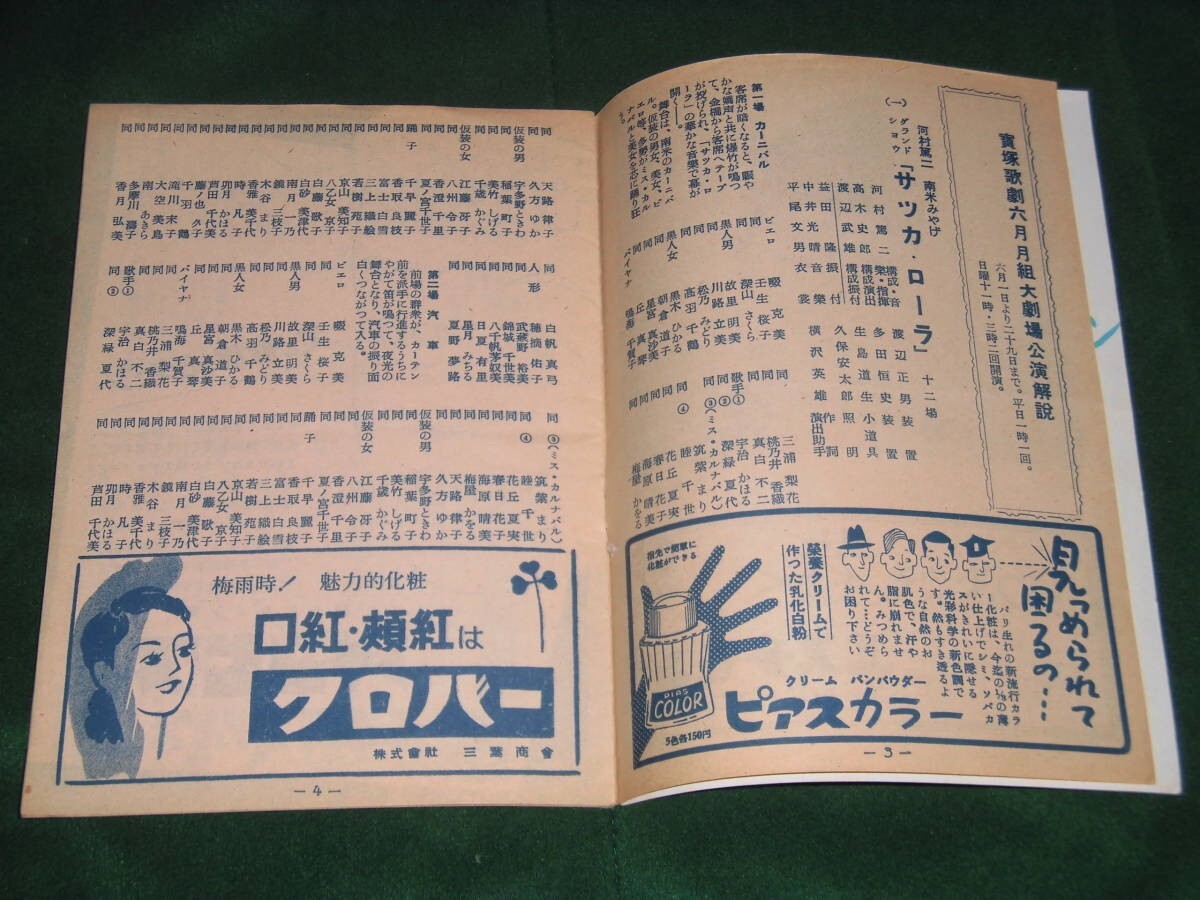 寳塚歌劇六月月組大劇場公演解説
六月一日より二十九日まで。平日一時一回。
日曜十一時・三時二回開演。
河村篤二 南米みやげ
(一) グランド・ショウ 「サツカ・ローラ」 十二場
河村篤二 構成・音楽・指揮
高木史郎 構成演出
渡辺武雄 構成振付
益田隆 振付
中井光晴 音楽
平尾文男 衣裳
渡辺正男 装置
多田恒史 装置
生島道生 小道具
久保安太郎 照明
作詞
横沢英雄 演出助手
第一場 カーニバル
客席が暗くなると、賑や
かな嬌声と共に爆竹が鳴つ
て、金橋から客席へテープ
が投げられ、「サツカ・ロ
ーラ」の華かな音楽で幕が
開く――。
舞台は、南米のカーニバ
ル。仮装の男女、美女、ピ
エロ等、多勢がミス・カル
ナバルと美女を芯に踊り狂
う。
ピエロ 畷克美
同 壬生桜子
同 深山さくら
黒人男 故里明美
同 川路立美
同 松乃みどり
同 高羽千鶴
黒人女 黒木ひかる
同 朝倉道子
同 星宮真沙美
同 丘真琴
バイヤナ 鳴海千賀子
同 三浦梨花
同 桃乃井香織
同 真白不二
歌手① 宇治かほる
同② 深緑夏代
同③(ミス・カルナバル) 筑紫まり
同④ 睦千世
同 花丘夏実
同 春日花子
同 海原晴美
同 梅屋かをる
見つめられて困るの…
パリ生れの新流行カラ
ー化粧は、今迄の⅕の薄
い仕上げでシミ、ソバカ
スがきれいに隠せる
光彩科学の新色調で
す。然もすき透るよ
うな自然のお
肌色で、汗や
脂に崩れませ
ん。みつめら
れて…どうぞ
お困り下さい
栄養クリームで
作つた乳化白粉
指先で簡単に
化粧ができる
PIAS
COLOR
5色各150円
クリーム パンパウダー
ピアスカラー
―3―
同 天路律子
仮装の男 久方ゆか
同 宇多野ときわ
同 稲葉町子
同 美竹しげる
同 千歳かぐみ
仮装の女 江藤冴子
同 八州令子
同 香澄千里
同 夏ノ宮千世子
踊子 千早麗子
同 香取良枝
同 富士白雪
同 三上織絵
同 若樹苑子
同 京山美知子
同 八乙女京子
同 白藤歌子
同 白砂美津代
同 南月一乃
同 鏡三枝子
同 木谷まり
同 香雅美千代
同 時凡子
同 卯月かほる
同 芦田千代美
同 藤ノ也久子
同 千羽鶴
同 滝川末子
同 大空美鳥
同 南あきら
同 多摩川壽子
同 香月弘美
人形 白帆真弓
同 穂摘佑子
同 武蔵野裕美
同 錦城千世美
同 八千帆茅奴美
同 日夏有里
同 星月みちる
同 夏野夢路
第二場 汽車
前場の群衆が、カーテン
前を派手に行進するうちに
やがて笛が鳴つて、夜光の
舞台となり、汽車の振り面
白くつながつて入る。
ピエロ 畷克美
同 壬生桜子
同 深山さくら
黒人男 故里明美
同 川路立美
同 松乃みどり
同 高羽千鶴
黒人女 黒木ひかる
同 朝倉道子
同 星宮真沙美
同 丘真琴
バイヤナ 鳴海千賀子
同 三浦梨花
同 桃乃井香織
同 真白不二
歌手① 宇治かほる
同② 深緑夏代
同③(ミス・カルナバル) 筑紫まり
同④ 睦千世
同 花丘夏実
同 春日花子
同 海原晴美
同 梅屋かをる
同 天路律子
仮装の男 久方ゆか
同 宇多野ときわ
同 稲葉町子
同 美竹しげる
同 千歳かぐみ
仮装の女 江藤冴子
同 八州令子
同 香澄千里
同 夏ノ宮千世子
踊子 千早麗子
同 香取良枝
同 富士白雪
同 三上織絵
同 若樹苑子
同 京山美知子
同 八乙女京子
同 白藤歌子
同 白砂美津代
同 南月一乃
同 鏡三枝子
同 木谷まり
同 香雅美千代
同 時凡子
同 卯月かほる
同 芦田千代美
梅雨時! 魅力的化粧
口紅・頬紅は
クロバー
株式會社 三葉商會
―4―